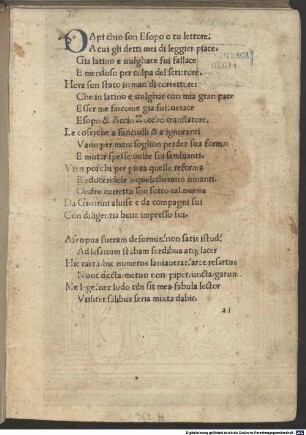 Sapi chio son Esopo o tu lettore:
A cui gli detti mei di leggier piace.
Gia latino e uulghare fui fallace
E mendoso per culpa del scrittore.
Hora son stato in man di correttore:
Che in latino e uulghar con mia gran pace
Esser me fa come gia fui uerace
Esopo & Accio Zuccho translatore.
Le cose che a fanciulli & a ignoranti
Vano per mani soglion perder sua forma
E mutar spesse uolte soi sembianti.
Vien poschi per pieta quelle reforma
Reducendole a quel che erano inuanti.
Ondio corretto son sotto tal norma
Da Giouanni aluise e da compagni sui
Con diligentia bene impresso fui.
Aesopus fueram deformis: non satis istud:
Ad insanum stabam sordibus atq; lacer
Hic carta: hic numeros laniauerat: arce resartus
Nunc decta: metuo non piper: uncta: garum
Me lege: nec ludo tibi sit mea fabula lector
Vtiliter salibus seria mixta dabit.
a1
BIBLIOTHECA
REGIA